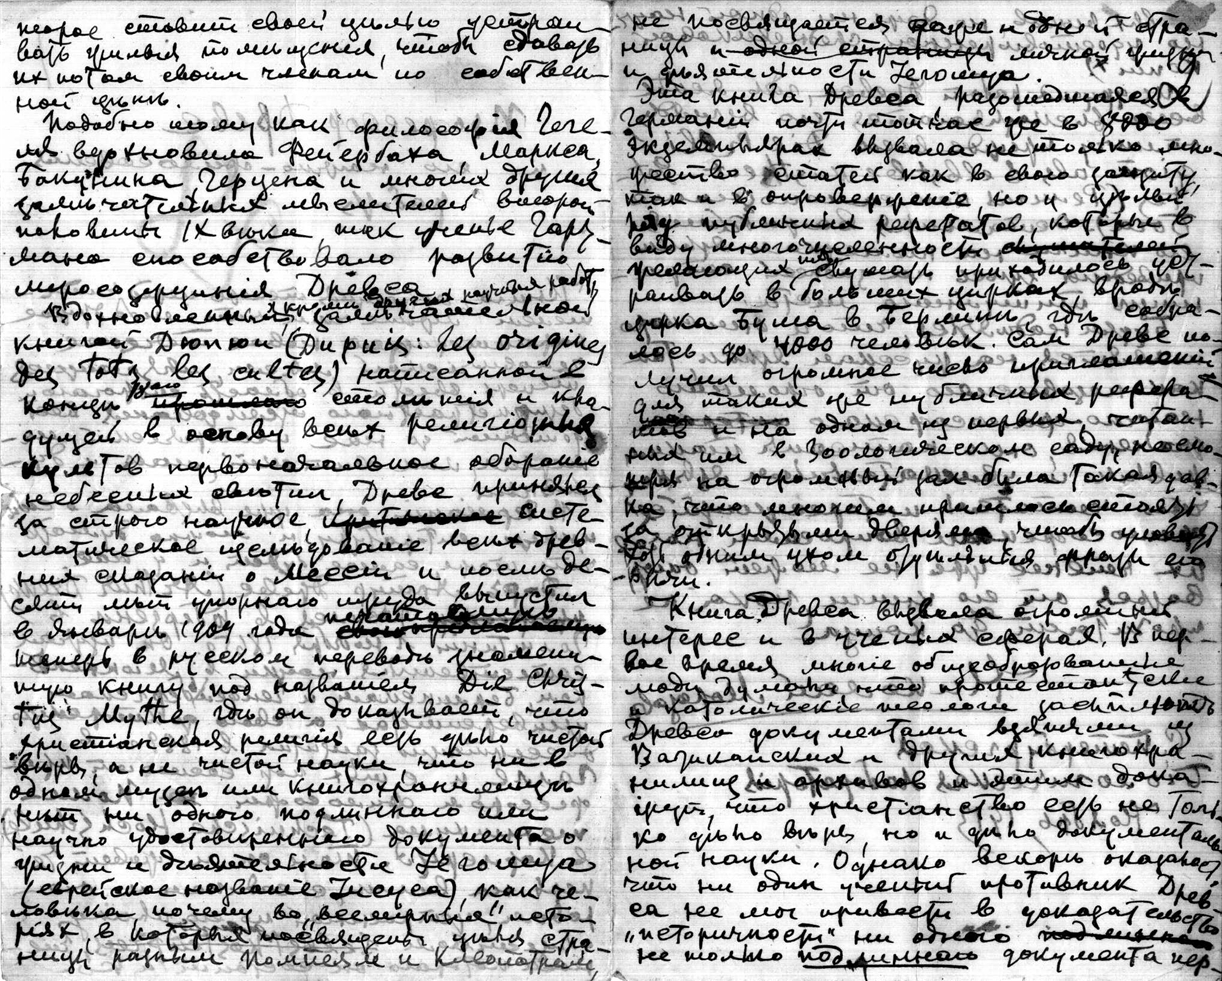 торое ставит своей цѣлью устраи-
вать
их потом своим членам, по собствен-
ной цѣнѣ.
Подобно тому как философія Геге-
ля вдохновила Фейербаха, Маркса,
Бакунина, Герцена и многих других
замѣчательных мыслителей второй
половины IX вѣка так ученіе Гарт-
мана способствовало развитію
міросозерцанія Древса
Вдохновленный, кромѣ других научных работ, замѣчательной
книгой Дюпюи (Dupuis: Les origines
des tots les cultes) написанной в
концѣ прошлого столѣтія и кла-
дущей в основу всѣх религіозных
культов первоначальное обораніе
небесных свѣтил, Древс принялся
за строго научное, критическое систе-
матическое изслѣдованіе всѣх древ-
них сказаній о Мессіи и послѣ де-
сяти лѣт упорнаго труда выпустил
в январѣ 1909 года
теперь в русском переводѣ знамени-
тую книгу под названіем Die Chris-
tus Mythe, гдѣ он доказывает, что
христіанская религія есть дѣло чистой
вѣры, а не чистой науки, что ни в
одном музеѣ или книгохранилищѣ
нѣт ни одного подлиннаго или
научно удостовѣреннаго документа о
жизни и дѣятельности Іегошуа
(еврейское названіе Іисуса), как че-
ловѣка почему во „всемірных" исто-
ріях, в которых посвящены цѣлыя стра-
ницы разным Помпеям и Клеопатрам,
не посвящается даже и одной стра-
ницы и одной страницы личной жизни
и дѣятельности Іегошуа.
Эта книга Древса, разошедшаяся в
Германіи почти тотчас же в 8000
экземплярах вызвала не только мно-
жество статей как в свою защиту,
так и в опроверженіе но и цѣлый
ряд публичных рефератов, которые в
виду многочисленности слушателей
желающих слушать приходилось уст-
раивать в больших цирках вродѣ
цирка Буша в Берлинѣ, гдѣ собра-
лось до 4000 человѣк. Сам Древс по-
лучил огромное число приглашеній
для таких же публичных рефера-
тов и на одном из первых, читан-
ных им в Зоологическом саду, несмо-
тря на огромный зал была такая дав-
ка, что многим пришлось стоять
за открытыми дверями, чтобы уловить
хоть одним ухом
рѣчи.
Книга Древса вызвала огромный
интерес и в ученых сферах. В пер-
вое время многіе общеобразованные
люди думали что протестантскіе
и католическіе теологи засыплют
Древса документами взятыми из
Ватиканских и других книгохра-
нилищ и архивов и этим дока-
жут, что христіанство есть не толь-
ко дѣло вѣры, но и дѣло документаль-
ной науки. Однако вскорѣ оказалось,
что ни один ученый противник Древ-
са не мог привести в доказательство
„историчности" ни одного подлиннаго
не только подлиннаго документа пер-